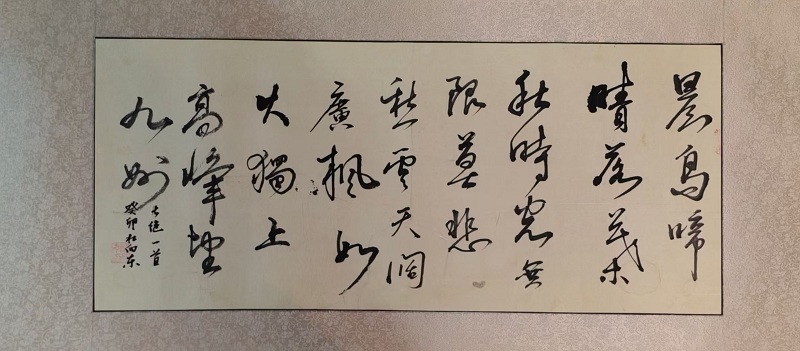 晨鳥啼
晴落葉
秋時光無
限莫悲
愁雲天闊
廣楓如
火獨上
高峰望
九州
七絕一首
癸卯向东